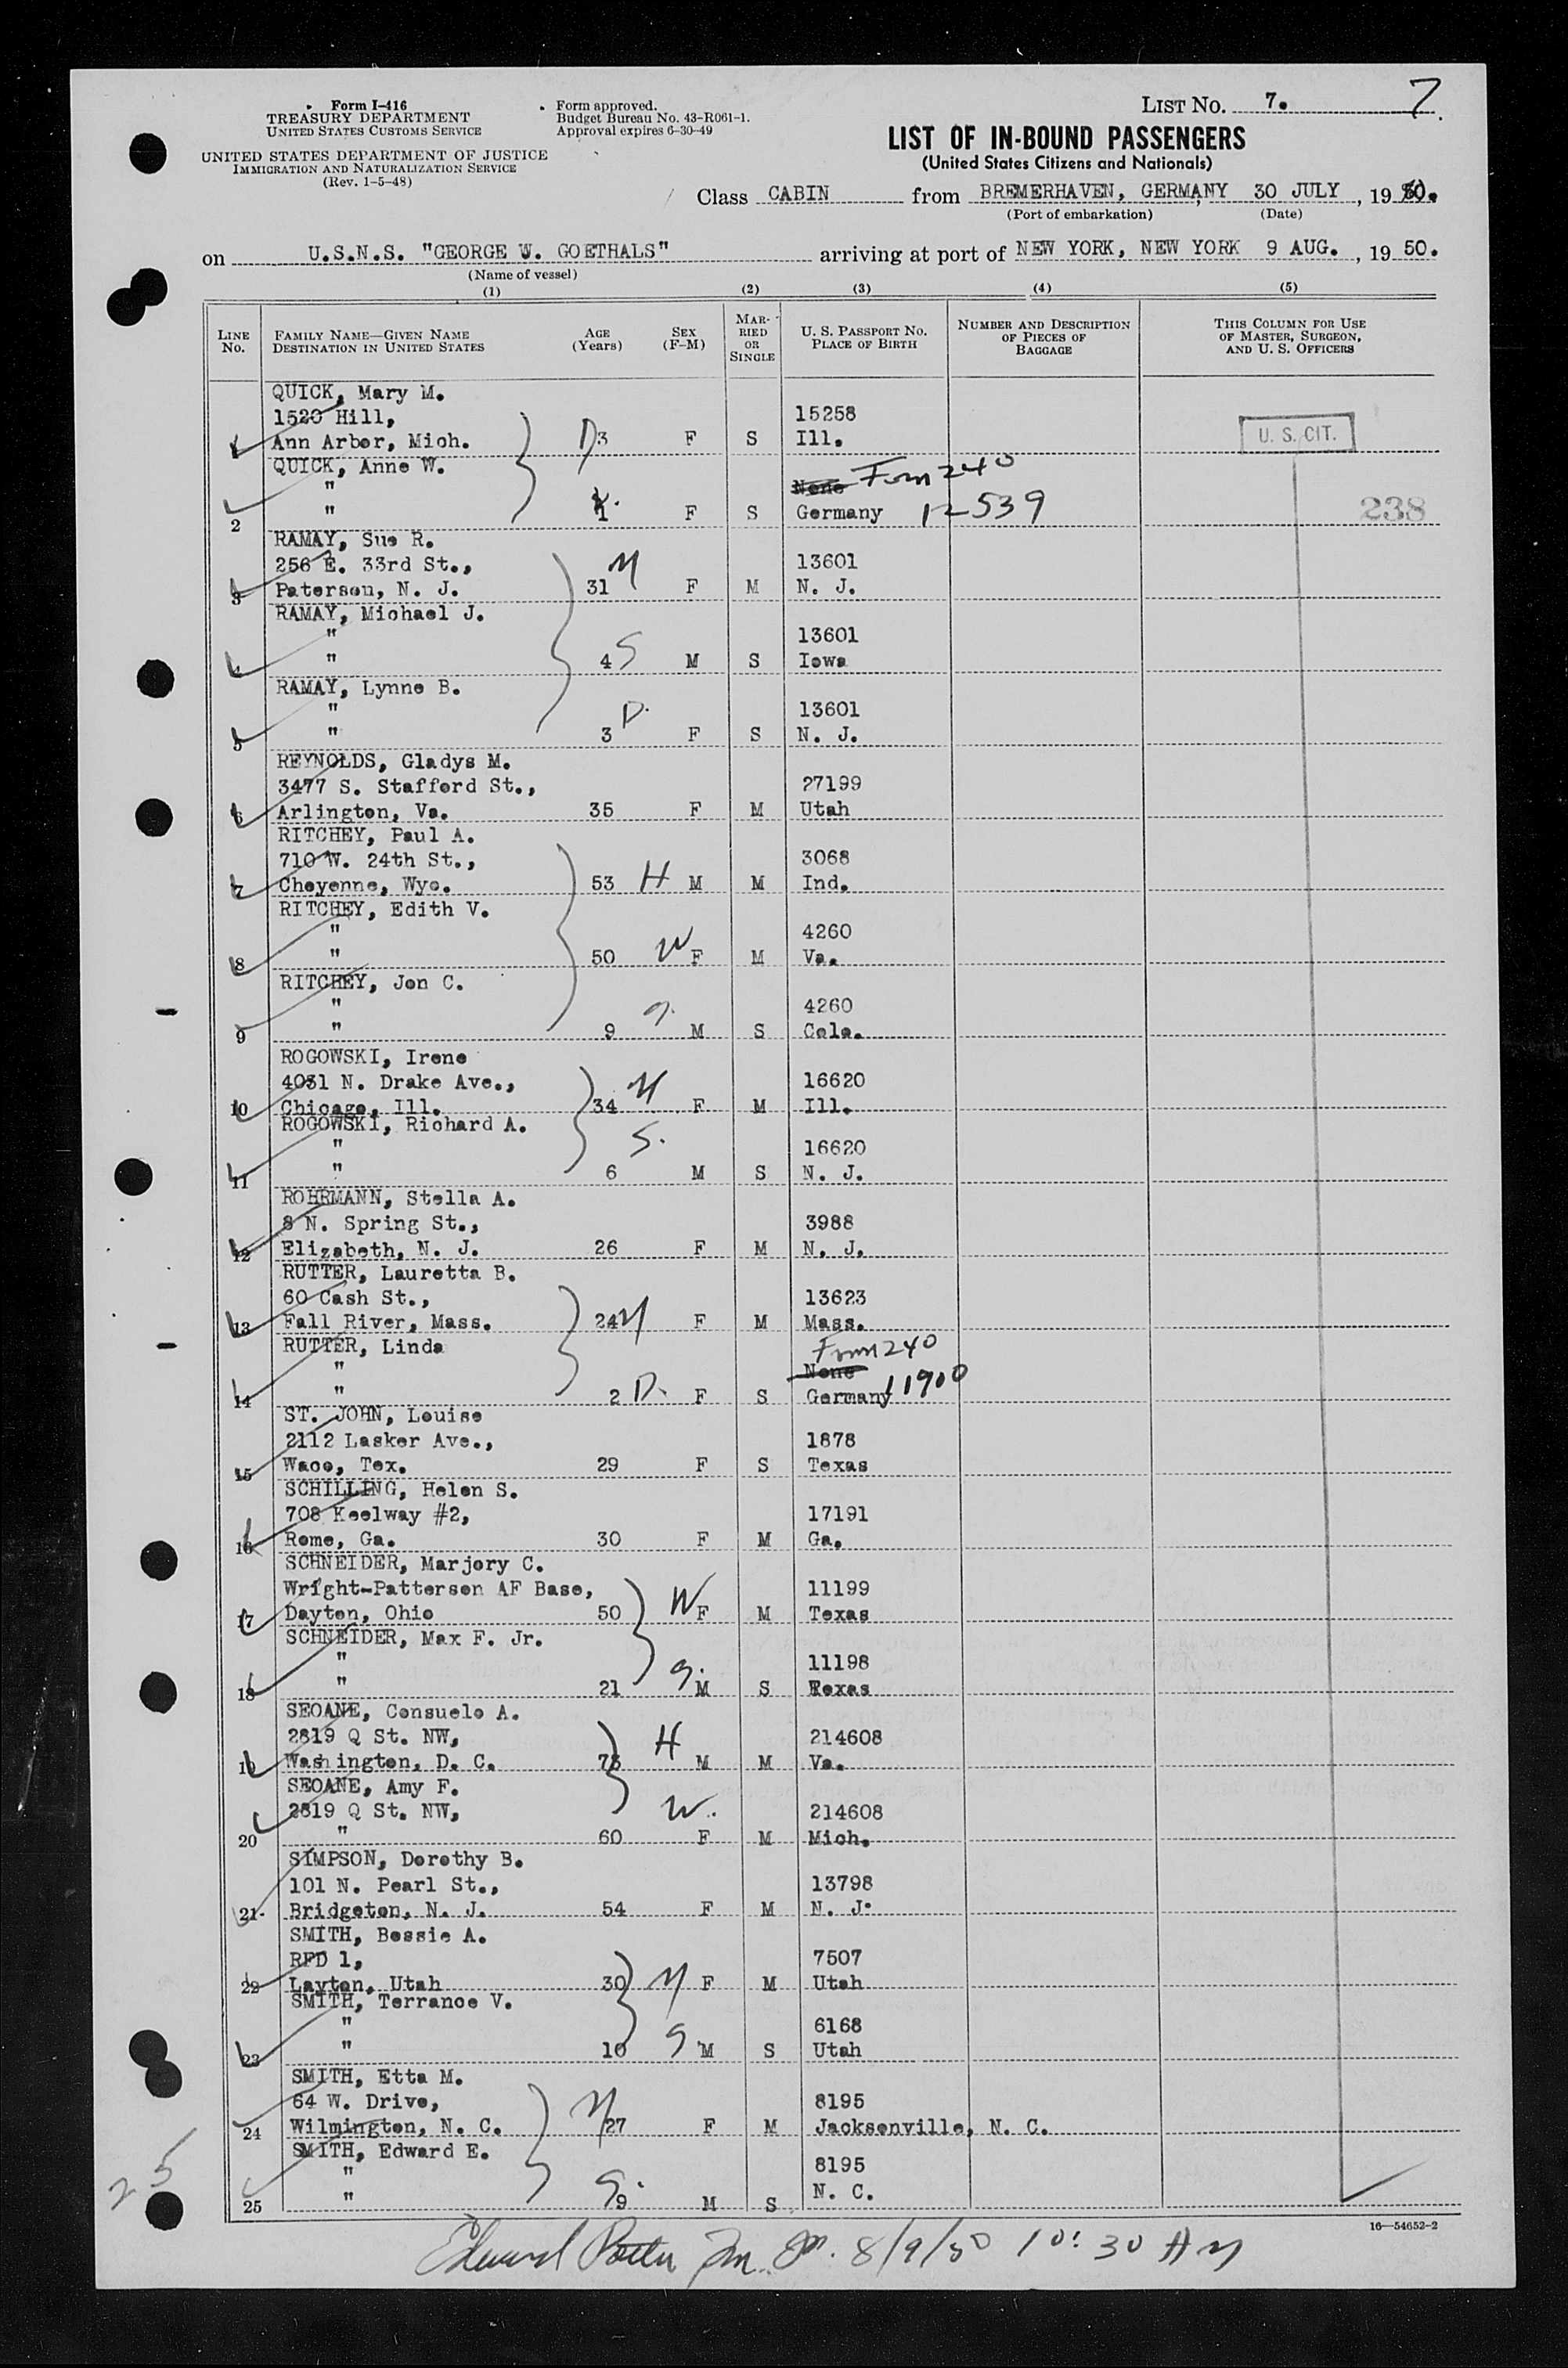 Form I-416
TREASURY DEPARTMENT
UNITED STATES CUSTOMS SERVICE
UNITED STATES DEPARTMENT OF JUSTICE
IMMIGRATION AND NATURALIZATION SERVICE
(Rev. 1-5-48)
Form approved.
Budget Bureau No. 43-R061-1.
Approval expires 6-30-49
LIST NO. 7. 7
LIST OF IN-BOUND PASSENGERS
(United States Citizens and Nationals)
Class CABIN from BREMERHAVEN, GERMANY 30 JULY, 1950.
(Port of embarkation) (Date)
on U.S.N.S. "GEORGE W. GOETHALS" arriving at port of NEW YORK, NEW YORK 9 AUG., 1950.
(Name of vessel)
(1) (2) (3) (4) (5)
LINE NO. FAMILY NAME—GIVEN NAME DESTINATION IN UNITED STATES AGE (Years) SEX (F-M) MARRIED OR SINGLE U. S. PASSPORT NO. PLACE OF BIRTH NUMBER AND DESCRIPTION OF PIECES OF BAGGAGE THIS COLUMN FOR USE OF MASTER, SURGEON, AND U. S. OFFICERS
QUICK, Mary M.
1520 Hill, 15258
Ann Arbor, Mich. 3 F S Ill. U. S. CIT.
QUICK, Anne W.
" None Form 240
2 " 1 F S Germany 12539 238
RAMAY, Sue R.
256 E. 33rd St., M 13601
3 Paterson, N. J. 31 F M N. J.
RAMAY, Michael J.
" 13601
4 " 4 S M S Iowa
RAMAY, Lynne B.
" D. 13601
5 " 3 F S N. J.
REYNOLDS, Gladys M.
3477 S. Stafford St., 27199
6 Arlington, Va. 35 F M Utah
RITCHEY, Paul A.
710 W. 24th St., 3068
7 Cheyenne, Wyo. 53 H M M Ind.
RITCHEY, Edith V.
" 4260
8 " 50 W F M Va.
RITCHEY, Jon C.
" 4260
9 " 9 S. M S Colo.
ROGOWSKI, Irene
4031 N. Drake Ave., M 16620
10 Chicago, Ill. 34 F M Ill.
ROGOWSKI, Richard A.
" S. 16620
11 " 6 M S N. J.
ROHRMANN, Stella A.
8 N. Spring St., 3988
12 Elizabeth, N. J. 26 F M N. J.
RUTTER, Lauretta B.
60 Cash St., 13623
13 Fall River, Mass. 24 M F M Mass.
RUTTER, Linda Form 240
" None
14 " 2 D. F S Germany 11900
ST. JOHN, Louise
2112 Lasker Ave., 1878
15 Waco, Tex. 29 F S Texas
SCHILLING, Helen S.
708 Keelway #2, 17191
16 Rome, Ga. 30 F M Ga.
SCHNEIDER, Marjory C.
Wright-Patterson AF Base, W 11199
17 Dayton, Ohio 50 F M Texas
SCHNEIDER, Max F. Jr.
" S. 11198
18 " 21 M S Texas
SEOANE, Consuelo A.
2819 Q St. NW, H 214608
19 Washington, D. C. 73 M M Va.
SEOANE, Amy F.
2819 Q St. NW, W. 214608
20 " 60 F M Mich.
SIMPSON, Dorothy B.
101 N. Pearl St., 13798
21. Bridgeton, N. J. 54 F M N. J.
SMITH, Bessie A.
RFD 1, 7507
22 Layton, Utah 30 M F M Utah
SMITH, Terrance V.
" 6168
23 " 10 S M S Utah
SMITH, Etta M.
64 W. Drive, M 8195
24 Wilmington, N. C. 27 F M Jacksonville, N. C.
SMITH, Edward E.
" 8195
25 " 9 S. M S N. C.
25
16—54652-2
Edward 8/9/50 10:30 AM